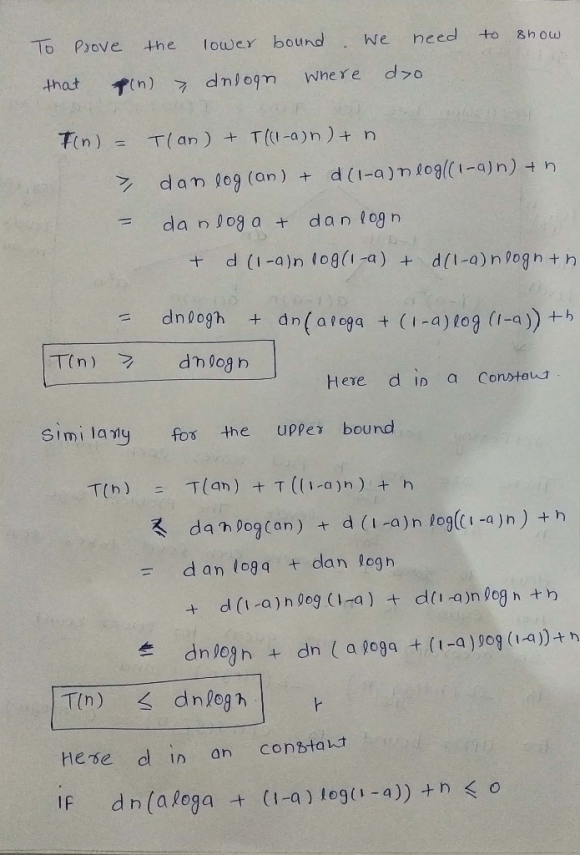 To Prove the lower bound. We need to show
that T(n) ≥ dnlogn where d>0
T(n) = T(an) + T((1-a)n) + n
≥ dan log(an) + d(1-a)nlog((1-a)n) + n
= dan log a + dan logn
+ d(1-a)n log(1-a) + d(1-a)nlogn + n
= dnlogn + dn(aloga + (1-a)log(1-a)) + n
T(n) ≥ dnlogn
Here d is a constant.
Similarly for the upper bound
T(n) = T(an) + T((1-a)n) + n
≤ danlog(an) + d(1-a)n log((1-a)n) + n
= dan loga + dan logn
+ d(1-a)nlog(1-a) + d(1-a)nlogn + n
≤ dnlogn + dn(aloga + (1-a)log(1-a)) + n
T(n) ≤ dnlogn
Here d is an constant
if dn(aloga + (1-a)log(1-a)) + n ≤ 0